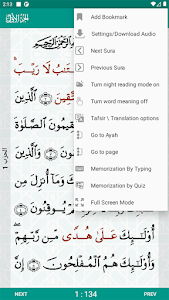 2:13
Add Bookmark
Settings/Download Audio
Next Sura
Previous Sura
Turn night reading mode on
Turn word meaning off
Tafsir \ Translation options
Go to Ayah
Go to page
Memorization By Typing
Memorization by Quiz
Full Screen Mode
لَا رَيْبَ
ٱلَّذِينَ
ٱلصَّلَوٰةَ
وَٱلَّذِينَ
وَمَآ أُنزِلَ مِن
الحزب ١
أُو۟لَٰٓئِكَ عَلَىٰ هُدًى مِّن رَّبِّهِمْ
وَأُو۟لَٰٓئِكَ هُمُ ٱلْمُفْلِحُونَ ۝٥
NEXT
1 : 134
PREV